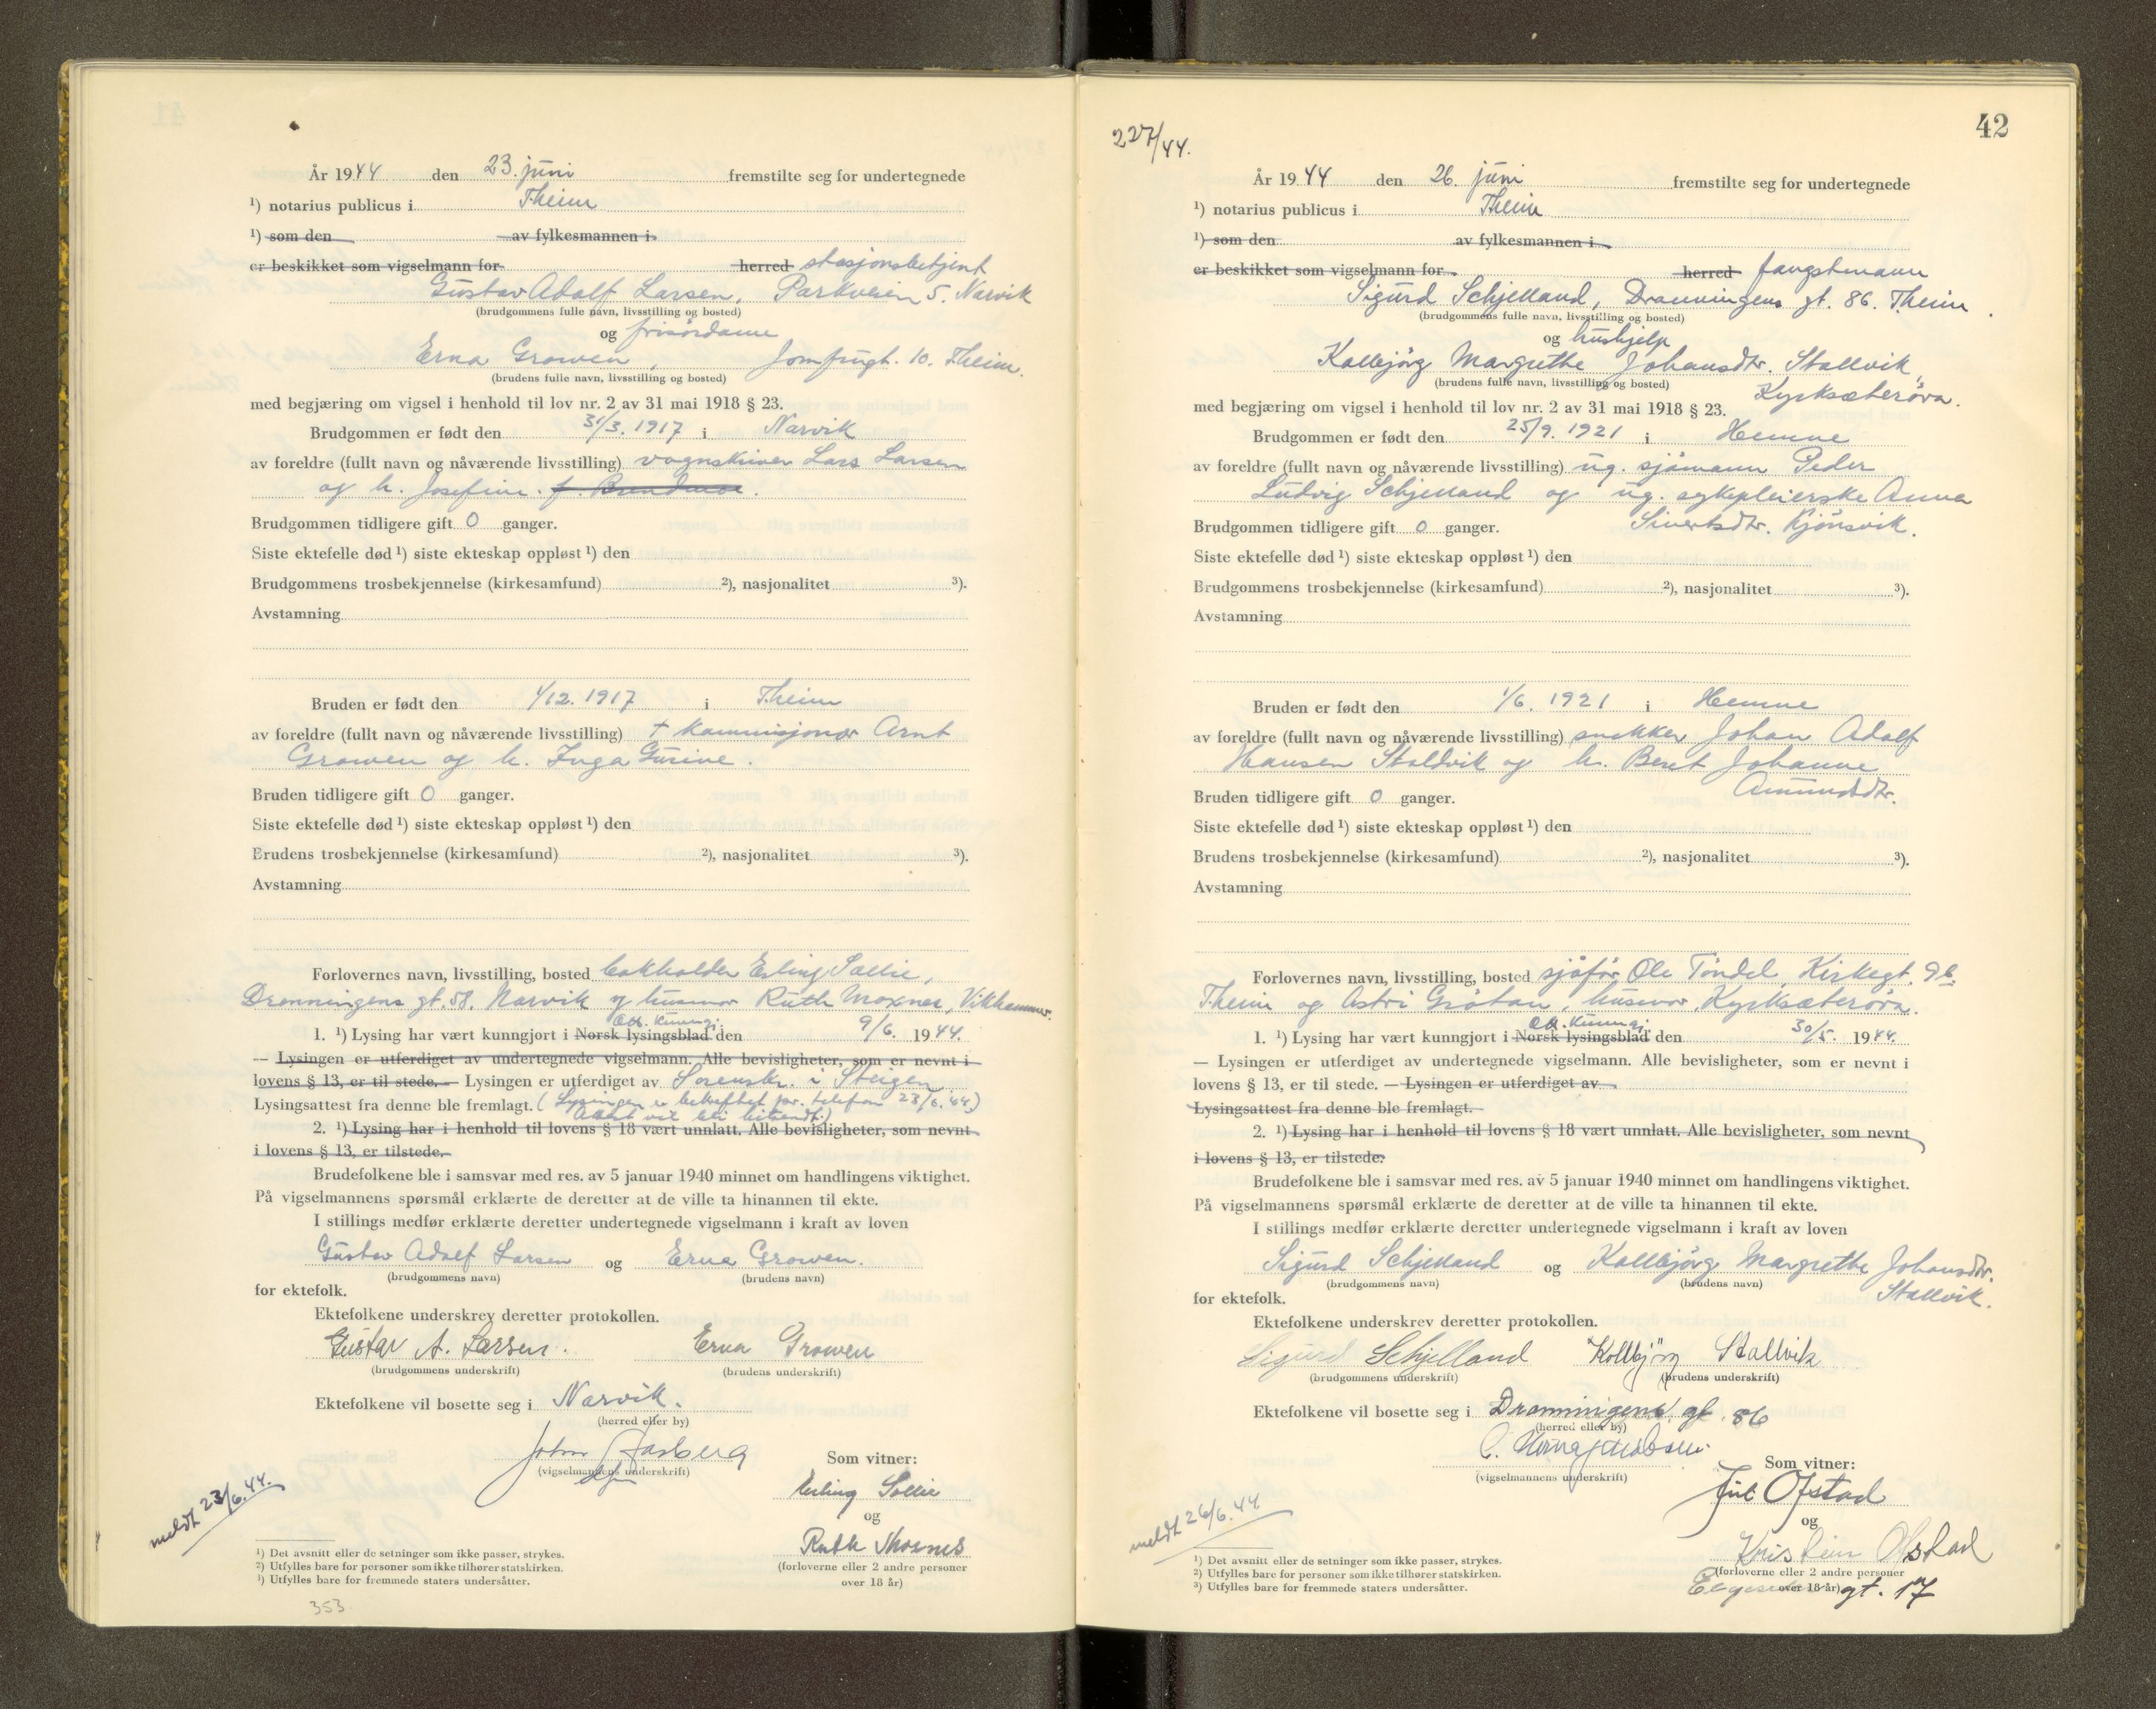 År 1944 den 23. juni fremstilte seg for undertegnede
¹) notarius publicus i Theim
¹) som den av fylkesmannen i
er beskikket som vigselmann for herred stasjonsbetjent
Gustav Adolf Larsen, Parkveien 5. Narvik
(brudgommens fulle navn, livsstilling og bosted)
og frisørdame
Erna Growen, Jomfrugt. 10. Theim.
(brudens fulle navn, livsstilling og bosted)
med begjæring om vigsel i henhold til lov nr. 2 av 31 mai 1918 § 23.
Brudgommen er født den 31/3. 1917 i Narvik
av foreldre (fullt navn og nåværende livsstilling) vognskriver Lars Larsen
og h. Josefine. f.
Brudgommen tidligere gift 0 ganger.
Siste ektefelle død ¹) siste ekteskap oppløst ¹) den
Brudgommens trosbekjennelse (kirkesamfund) ²), nasjonalitet ³).
Avstamning
Bruden er født den 1/12. 1917 i Theim
av foreldre (fullt navn og nåværende livsstilling) † kommisjonær Arnt
Growen og h. Inga Gurine.
Bruden tidligere gift 0 ganger.
Siste ektefelle død ¹) siste ekteskap oppløst ¹) den
Brudens trosbekjennelse (kirkesamfund) ²), nasjonalitet ³).
Avstamning
Forlovernes navn, livsstilling, bosted bokholder Erling Sollie,
Dronningens gt. 58. Narvik og husmor Ruth Moxnes, Vikhammer.
Off. kunngj.
1. ¹) Lysing har vært kunngjort i Norsk lysingsblad den 9/6. 1944.
— Lysingen er utferdiget av undertegnede vigselmann. Alle bevisligheter, som er nevnt i
lovens § 13, er til stede. — Lysingen er utferdiget av Sorenskr. i Steigen
Lysingsattest fra denne ble fremlagt. (Lysingen er bekreftet pr. telefon 23/6. 44.)
Attest vil bli tilsendt.)
2. ¹) Lysing har i henhold til lovens § 18 vært unnlatt. Alle bevisligheter, som nevnt
i lovens § 13, er tilstede.
Brudefolkene ble i samsvar med res. av 5 januar 1940 minnet om handlingens viktighet.
På vigselmannens spørsmål erklærte de deretter at de ville ta hinannen til ekte.
I stillings medfør erklærte deretter undertegnede vigselmann i kraft av loven
Gustav Adolf Larsen og Erna Growen.
(brudgommens navn) (brudens navn)
for ektefolk.
Ektefolkene underskrev deretter protokollen.
Gustav A. Larsen. Erna Growen
(brudgommens underskrift) (brudens underskrift)
Ektefolkene vil bosette seg i Narvik.
(herred eller by)
John Aasberg
(vigselmannens underskrift)
Som vitner:
Erling Sollie
og
Ruth Moxnes
(forloverne eller 2 andre personer
over 18 år)
meldt 23/6.44.
¹) Det avsnitt eller de setninger som ikke passer, strykes.
²) Utfylles bare for personer som ikke tilhører statskirken.
³) Utfylles bare for fremmede staters undersåtter.
353
227/44.
42
År 1944 den 26. juni fremstilte seg for undertegnede
¹) notarius publicus i Theim
¹) som den av fylkesmannen i
er beskikket som vigselmann for herred fangstmann
Sigurd Schjelland, Dronningens gt. 86. Theim.
(brudgommens fulle navn, livsstilling og bosted)
og hushjelp
Kollbjörg Margrethe Johansdtr. Stallvik,
(brudens fulle navn, livsstilling og bosted)
Kyrksæterøra.
med begjæring om vigsel i henhold til lov nr. 2 av 31 mai 1918 § 23.
Brudgommen er født den 25/9. 1921 i Hemne
av foreldre (fullt navn og nåværende livsstilling) ug. sjömann Peder
Ludvig Schjelland og ug. sykepleierske Anna
Brudgommen tidligere gift 0 ganger. Sivertsdtr. Kjönsvik.
Siste ektefelle død ¹) siste ekteskap oppløst ¹) den
Brudgommens trosbekjennelse (kirkesamfund) ²), nasjonalitet ³).
Avstamning
Bruden er født den 1/6. 1921 i Hemne
av foreldre (fullt navn og nåværende livsstilling) snekker Johan Adolf
Hansen Stallvik og h. Beret Johanne
Bruden tidligere gift 0 ganger. Amundsdtr.
Siste ektefelle død ¹) siste ekteskap oppløst ¹) den
Brudens trosbekjennelse (kirkesamfund) ²), nasjonalitet ³).
Avstamning
Forlovernes navn, livsstilling, bosted sjåför Ole Töndel, Kirkegt. 9b.
Theim og Astri Grötan, husmor, Kyrksæterøra.
Off. kunngj.
1. ¹) Lysing har vært kunngjort i Norsk lysingsblad den 30/5. 1944.
— Lysingen er utferdiget av undertegnede vigselmann. Alle bevisligheter, som er nevnt i
lovens § 13, er til stede. — Lysingen er utferdiget av
Lysingsattest fra denne ble fremlagt.
2. ¹) Lysing har i henhold til lovens § 18 vært unnlatt. Alle bevisligheter, som nevnt
i lovens § 13, er tilstede.
Brudefolkene ble i samsvar med res. av 5 januar 1940 minnet om handlingens viktighet.
På vigselmannens spørsmål erklærte de deretter at de ville ta hinannen til ekte.
I stillings medfør erklærte deretter undertegnede vigselmann i kraft av loven
Sigurd Schjelland og Kollbjörg Margrethe Johansdtr.
(brudgommens navn) (brudens navn)
Stallvik.
for ektefolk.
Ektefolkene underskrev deretter protokollen.
Sigurd Schjelland Kollbjörg Stallvik
(brudgommens underskrift) (brudens underskrift)
Ektefolkene vil bosette seg i Dronningens gt. 86
(herred eller by)
(vigselmannens underskrift)
Som vitner:
Jul Ofstad
og
Kristein Ofstad
(forloverne eller 2 andre personer
over 18 år)
gt. 17
meldt 26/6.44
¹) Det avsnitt eller de setninger som ikke passer, strykes.
²) Utfylles bare for personer som ikke tilhører statskirken.
³) Utfylles bare for fremmede staters undersåtter.